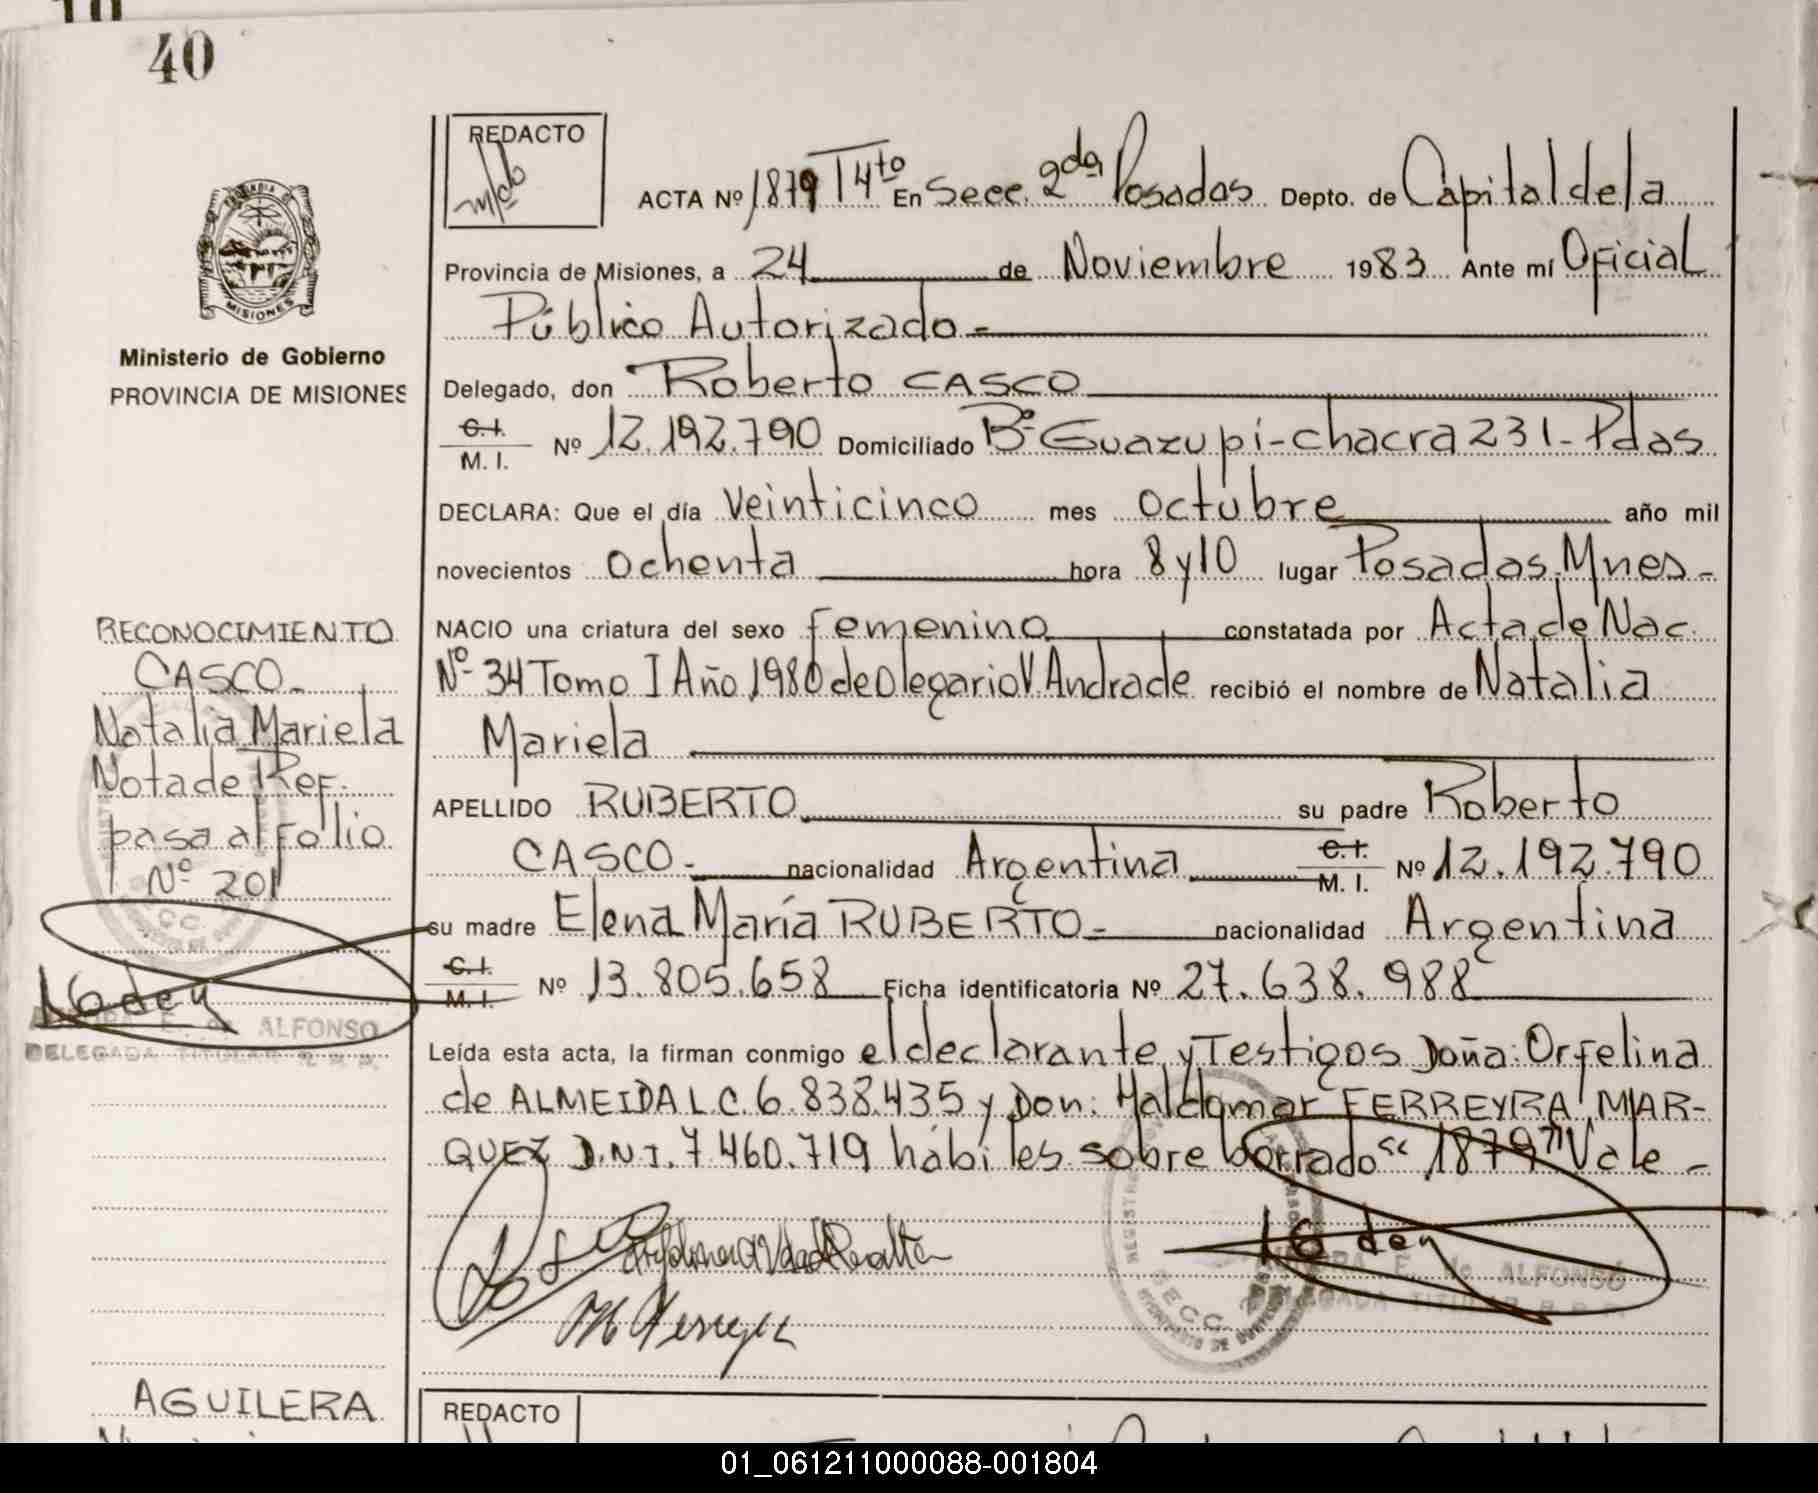 40
REDACTO
ACTA Nº 1879 T 4to En Secc. 2da Posadas Depto. de Capital de la
Provincia de Misiones, a 24 de Noviembre 1983 Ante mí Oficial
Público Autorizado.-
MISIONES
Ministerio de Gobierno
PROVINCIA DE MISIONES
Delegado, don Roberto CASCO
C.I.
M. I. Nº 12.192.790 Domiciliado Bº Guazupi-chacra 231-Pdas
DECLARA: Que el día Veinticinco mes octubre año mil
novecientos ochenta hora 8 y 10 lugar Posadas, Mnes-
NACIO una criatura del sexo femenino constatada por Acta de Nac.
Nº 34 Tomo I Año 1980 de Olegario V. Andrade recibió el nombre de Natalia
Mariela
APELLIDO RUBERTO su padre Roberto
CASCO- nacionalidad Argentina C.I.
M. I. Nº 12.192.790
su madre Elena María RUBERTO- nacionalidad Argentina
C.I.
M. I. Nº 13.805.658 Ficha identificatoria Nº 27.638.988
Leída esta acta, la firman conmigo el declarante y Testigos Doña: Orfelina
de ALMEIDA L C. 6.838.435 y Don: Haldamar FERREYRA MAR-
QUEZ D.N.I. 7.460.719 hábiles sobre borrado "1879" Vale-
RECONOCIMIENTO
CASCO-
Natalia Mariela
Nota de Ref.
pasa al folio
Nº 201
E. de ALFONSO
DELEGADA TITULAR
E. de ALFONSO
DELEGADA TITULAR
SECC. 2
AGUILERA
REDACTO
01_061211000088-001804